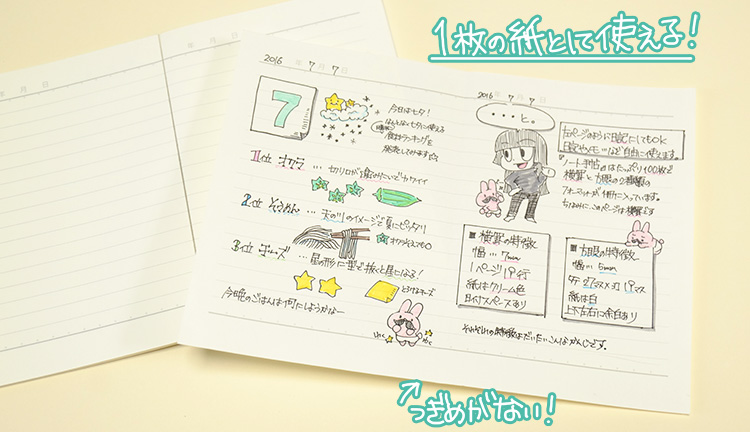 1枚の紙として使える!
年 月 日
年 月 日
2016 年 7 月 7 日
7
今日は七夕!
食材ランキングを
発表してみます☆
1位 オクラ … 切り口が星みたいでカワイイ
2位 そうめん … 天の川のイメージで夏にピッタリ
オクラ添えても○
3位 チーズ … 星の形に型で抜くと星になる!
とろけるチーズ
今晩のごはんは何にしようかなー
2016 年 7 月 7 日
・・・と。
左ページのように日記にしてもOK
日記やメモ…など自由に使えます。
ノート手帖はたっぷり100枚で
横罫と方眼の2種類の
フォーマットが1冊に入っています。
ちなみに、このページは横罫です
■横罫の特徴
幅…7mm
1ページ19行
紙はクリーム色
日付スペースあり
■方眼の特徴
幅…5mm
タテ27マス×ヨコ19マス
紙は白
上下左右に余白あり
それぞれの特徴はだいたいこんなかんじです。
つぎめがない!